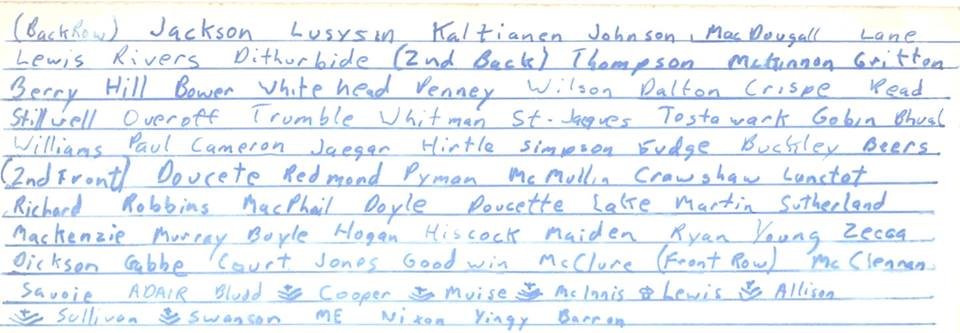 (Back Row) Jackson Lusysin Kaltianen Johnson, MacDougall Lane
Lewis Rivers Dithurbide (2nd Back) Thompson McKinnon Gritton
Berry Hill Bower White head Penney Wilson Dalton Crispe Read
Stillwell Overoff Trumble Whitman St-Jaques Tostawark Gobin Bhual
Williams Paul Cameron Jaegar Hirtle Simpson Fudge Buckley Beers
(2nd Front) Doucete Redmond Pyman McMullin Crawshaw Lanctot
Richard Robbins MacPhail Doyle Doucette Lake Martin Sutherland
Mackenzie Murray Boyle Hogan Hiscock Maiden Ryan Young Zecca
Dickson Gabbe Court Jones Goodwin McClure (Front Row) McClennan
Savoie ADAIR Bludd Cooper Muise McInnis Lewis Allison
Sullivan Swanson ME Nixon Yingy Barron